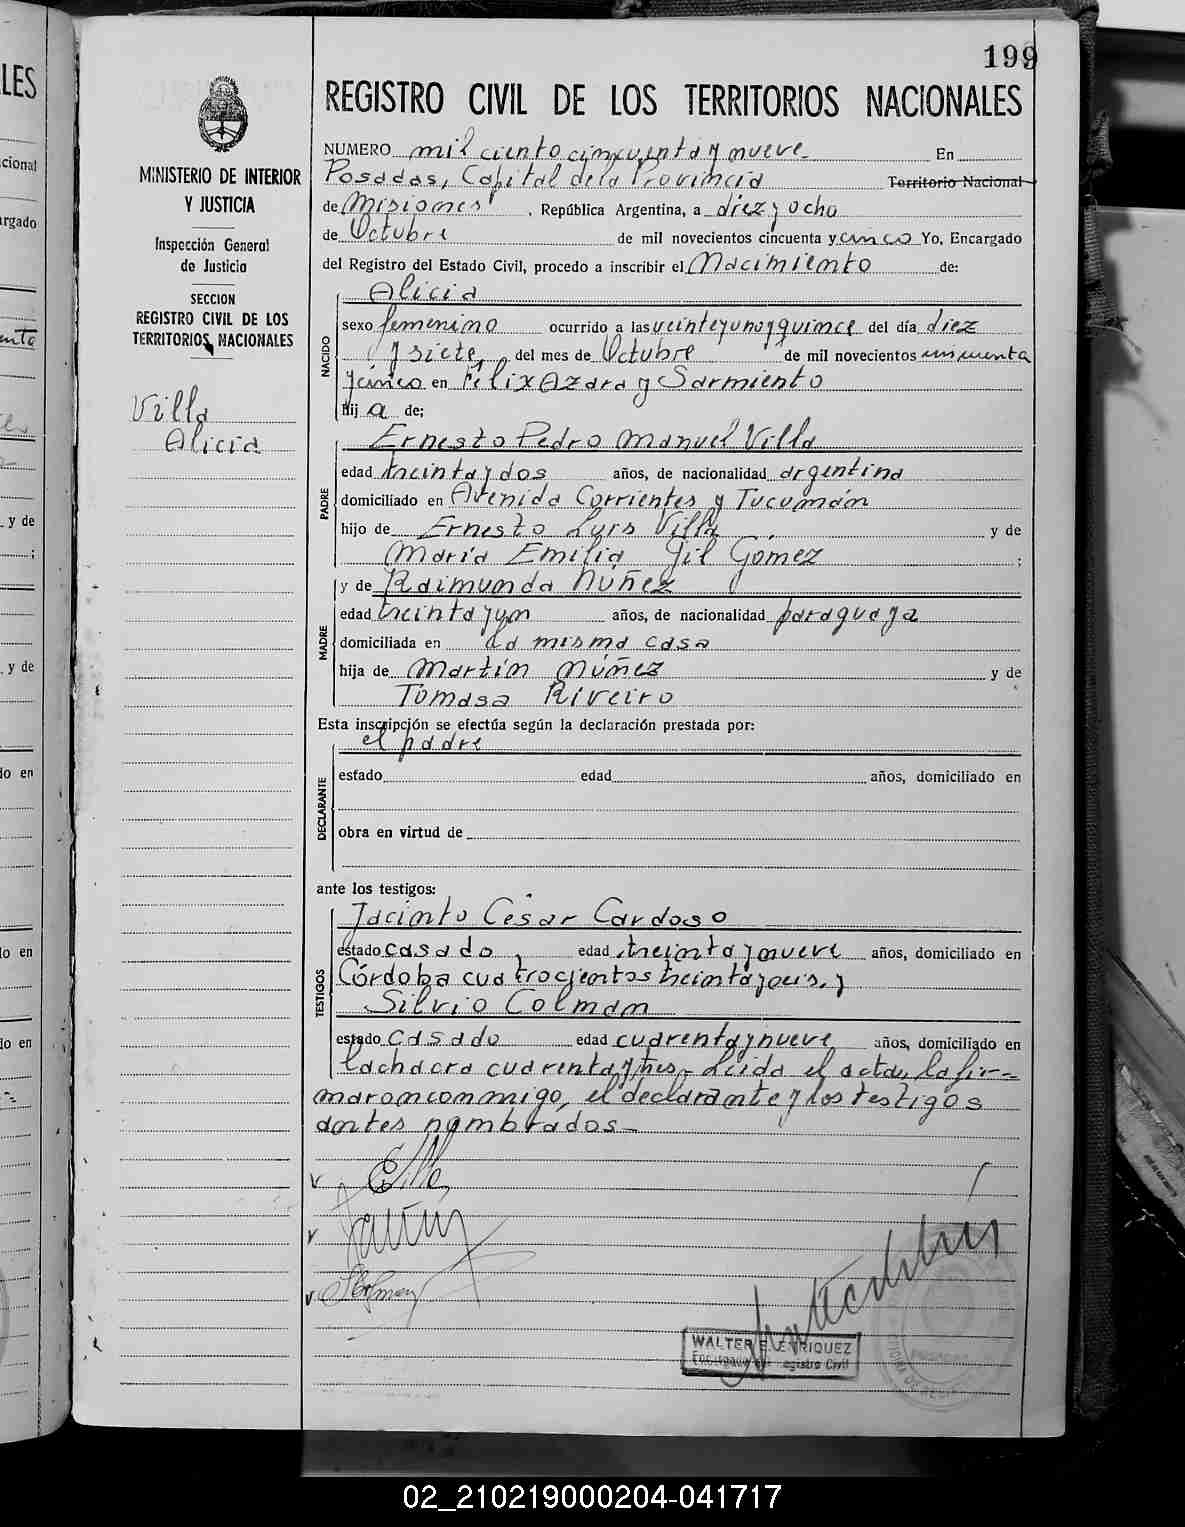 199
LES
cional
rgado
y de
;
y de
do en
do en
do en
MINISTERIO DE INTERIOR
Y JUSTICIA
Inspección General
de Justicia
SECCION
REGISTRO CIVIL DE LOS
TERRITORIOS NACIONALES
Villa
Alicia
REGISTRO CIVIL DE LOS TERRITORIOS NACIONALES
NUMERO mil ciento cincuenta y nueve En
Posadas, Capital de la Provincia Territorio Nacional
de Misiones, República Argentina, a diez y ocho
de Octubre de mil novecientos cincuenta y cinco Yo, Encargado
del Registro del Estado Civil, procedo a inscribir el Nacimiento de:
NACIDO
Alicia
sexo femenino ocurrido a las veinte y uno y quince del día diez
y siete, del mes de Octubre de mil novecientos cincuenta
y cinco en Félix Azara y Sarmiento
Hij a de;
PADRE
Ernesto Pedro Manuel Villa
edad treinta y dos años, de nacionalidad argentina
domiciliado en Avenida Corrientes y Tucumán
hijo de Ernesto Luis Villa y de
María Emilia Gil Gómez ;
y de Raimunda Núñez
MADRE
edad treinta y un años, de nacionalidad paraguaya
domiciliada en la misma casa
hija de Martín Núñez y de
Tomasa Riveiro
Esta inscripción se efectúa según la declaración prestada por:
el padre
DECLARANTE
estado edad años, domiciliado en
obra en virtud de
ante los testigos:
TESTIGOS
Jacinto César Cardoso
estado casado, edad treinta y nueve años, domiciliado en
Córdoba cuatrocientos treinta y seis, y
Silvio Colman
estado casado edad cuarenta y nueve años, domiciliado en
la chacra cuarenta y tres.- Leida el acta, la fir-
maron conmigo, el declarante y los testigos
antes nombrados-
EVilla
SColman
WALTER E. ENRIQUEZ
Encargado del Registro Civil
POSADAS
02_210219000204-041717